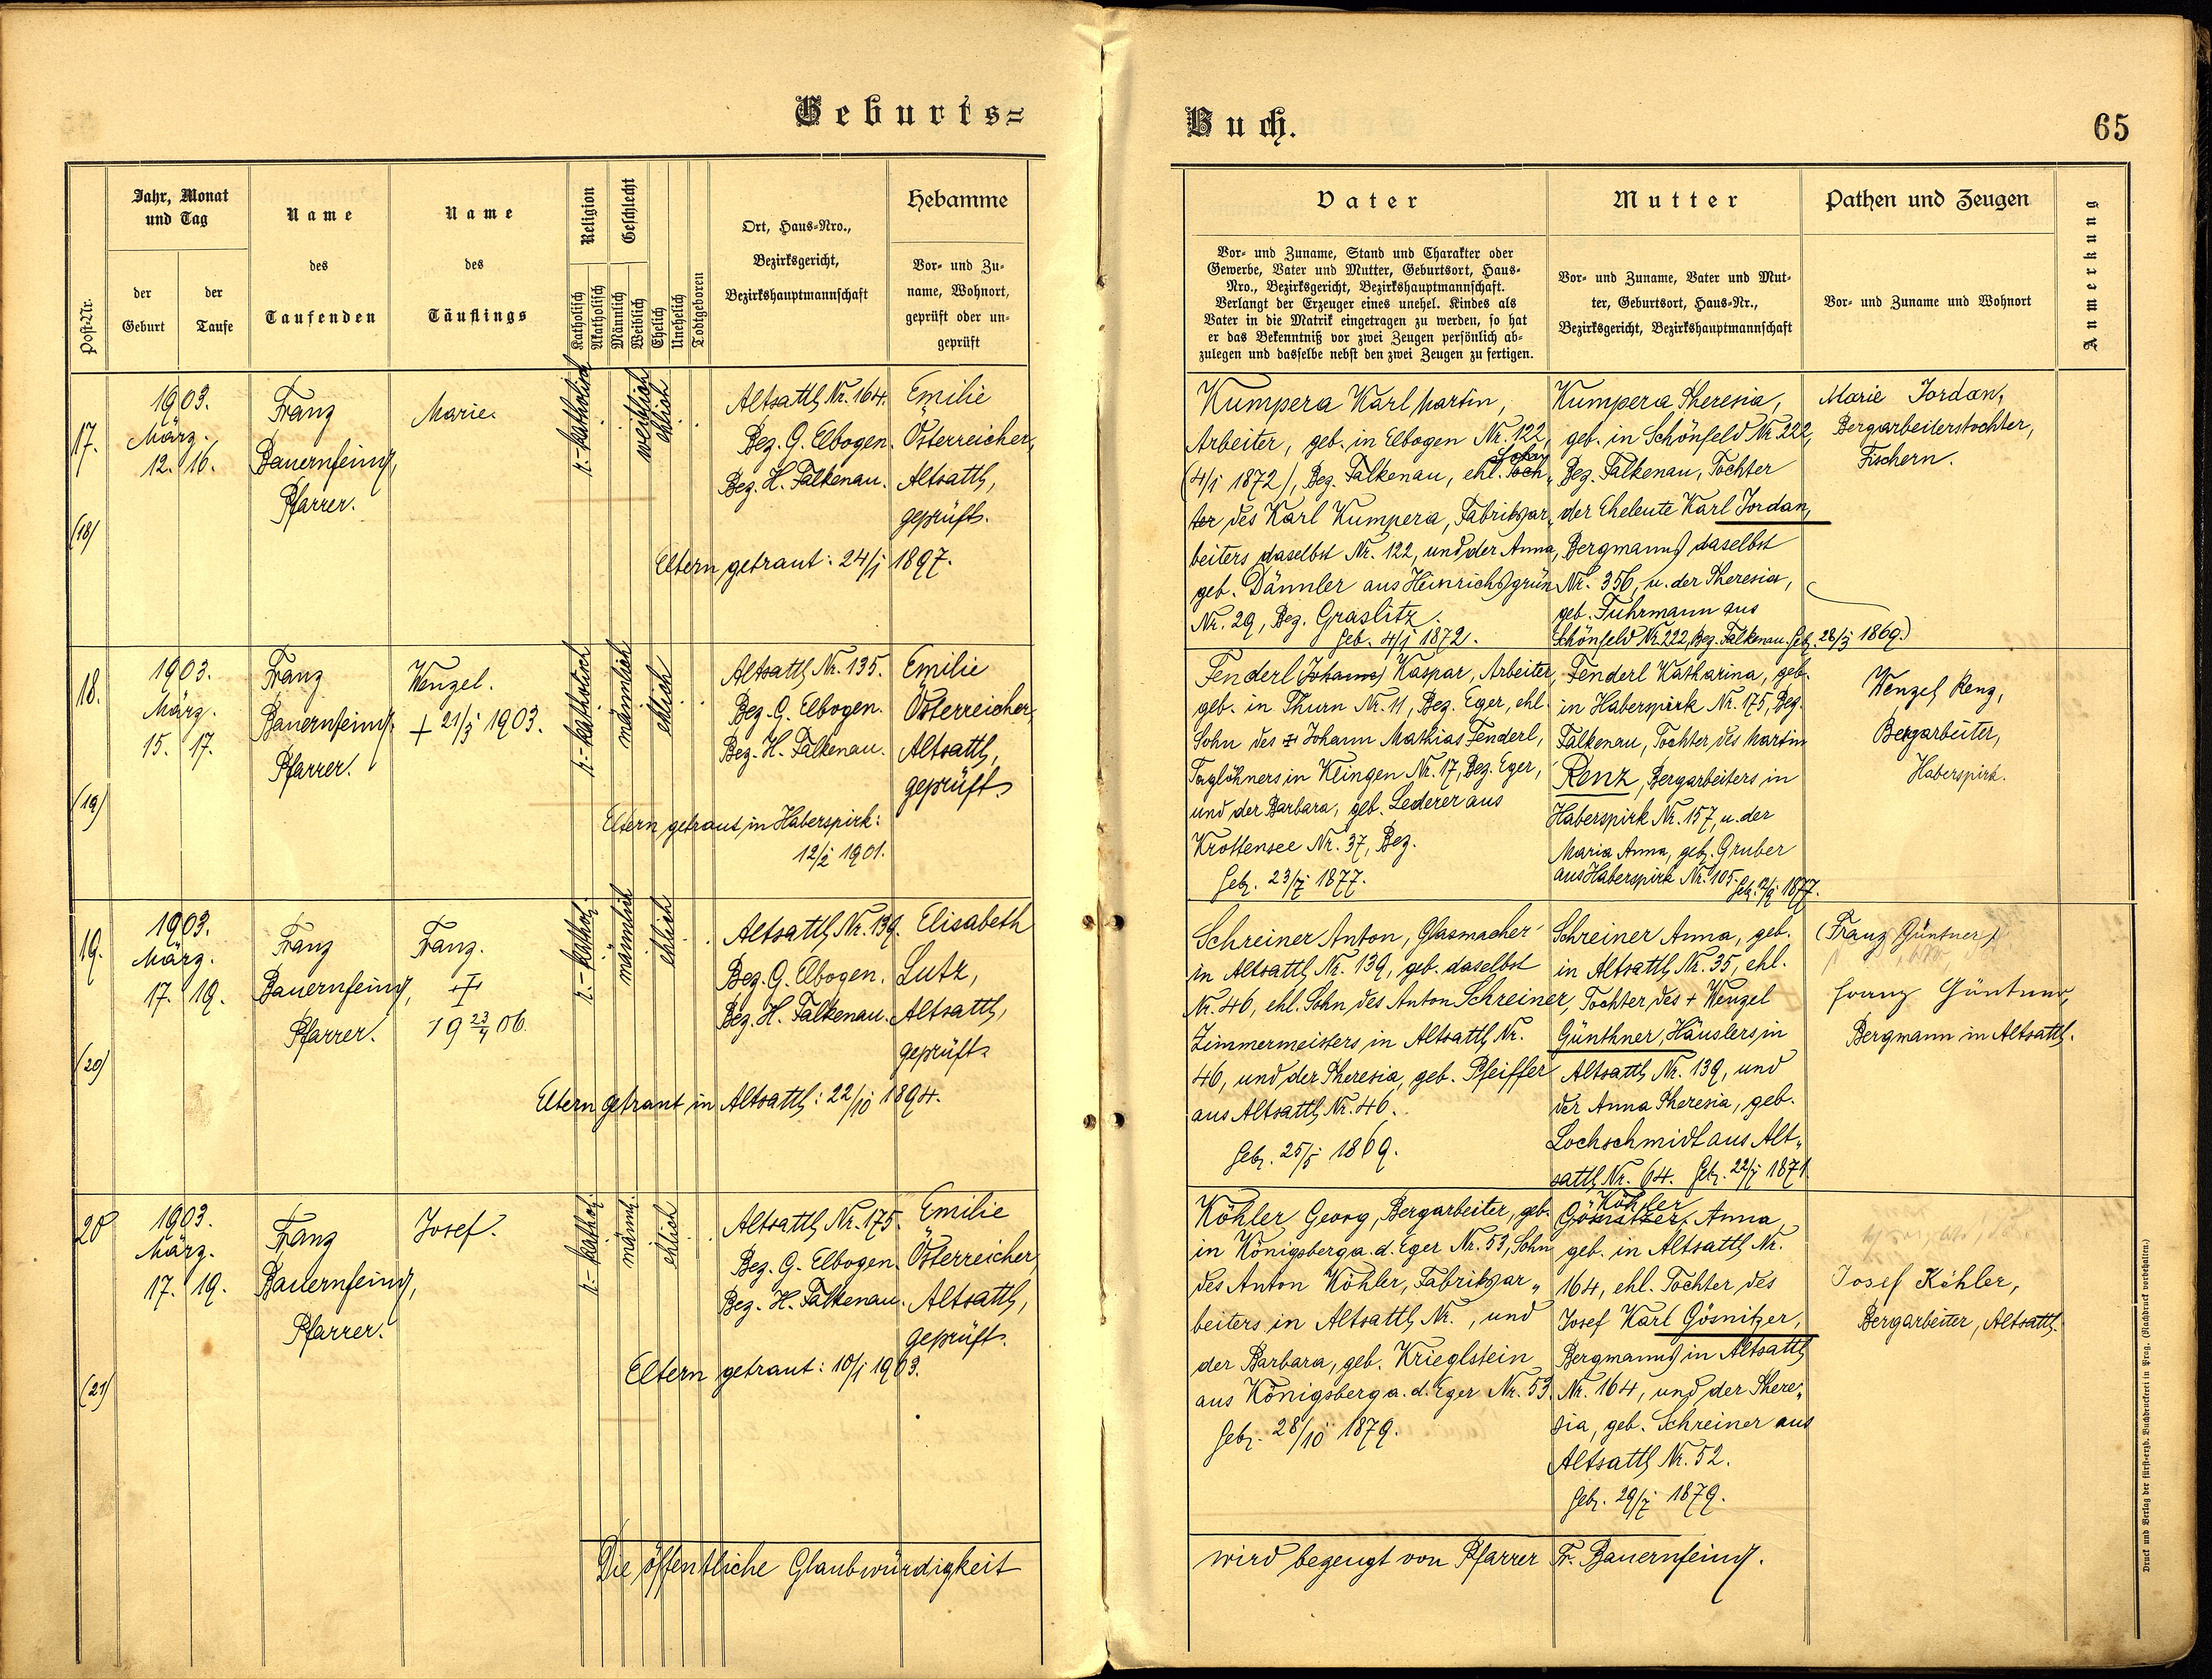 Geburts=
Buch.
65
Post-Nr.
Jahr, Monat
und Tag
der
Geburt
der
Taufe
Name
des
Taufenden
Name
des
Täuflings
Religion
Katholisch
Akatholisch
Geschlecht
Männlich
Weiblich
Ehelich
Unehelich
Todtgeboren
Ort, Haus-Nro.,
Bezirksgericht,
Bezirkshauptmannschaft
Hebamme
Vor- und Zu-
name, Wohnort,
geprüft oder un-
geprüft
Vater
Vor- und Zuname, Stand und Charakter oder
Gewerbe, Vater und Mutter, Geburtsort, Haus-
Nro., Bezirksgericht, Bezirkshauptmannschaft.
Verlangt der Erzeuger eines unehel. Kindes als
Vater in die Matrik eingetragen zu werden, so hat
er das Bekenntniß vor zwei Zeugen persönlich ab-
zulegen und dasselbe nebst den zwei Zeugen zu fertigen.
Mutter
Vor- und Zuname, Vater und Mut-
ter, Geburtsort, Haus-Nr.,
Bezirksgericht, Bezirkshauptmannschaft
Pathen und Zeugen
Vor- und Zuname und Wohnort
Anmerkung
17.
(18)
1903.
März.
12. 16.
Franz
Bauernfeind,
Pfarrer.
Marie.
r.-katholisch
weiblich
ehlich
Altsattl Nr. 164.
Bez. G. Elbogen.
Bez. H. Falkenau.
Emilie
Österreicher,
Altsattl,
geprüft.
Eltern getraut: 24/1 1897.
Kumpera Karl Martin,
Arbeiter, geb. in Elbogen Nr. 122,
(4/1 1872), Bez. Falkenau, ehl. Toch„
Sohn
ter des Karl Kumpera, Fabriksar„
beiters daselbst Nr. 122, und der Anna,
geb. Dännler aus Heinrichsgrün
Nr. 29, Bez. Graslitz.
Geb. 4/1 1872.
Kumpera Theresia,
geb. in Schönfeld Nr 222,
Bez. Falkenau, Tochter
der Eheleute Karl Jordan,
Bergmanns daselbst
Nr. 356, u. der Theresia,
geb. Fuhrmann aus
Schönfeld Nr. 222, Bez. Falkenau. Geb. 28/3 1869.)
Marie Jordan,
Bergarbeiterstochter,
Fischern.
18.
(19)
1903.
März.
15. 17.
Franz
Bauernfeind.
Pfarrer.
Wenzel.
+ 21/3 1903.
r.-katholisch
männlich
ehlich
Altsattl Nr. 135.
Bez. G. Elbogen.
Bez. H. Falkenau.
Emilie
Österreicher,
Altsattl,
geprüft
Eltern getraut in Haberspirk:
12/2 1901.
Fenderl (Johann) Kaspar, Arbeiter,
geb. in Thurn Nr. 11, Bez. Eger, ehl.
Sohn des + Johann Mathias Fenderl,
Taglöhners in Klingen Nr. 17, Bez. Eger,
und der Barbara, geb. Lederer aus
Krottensee Nr. 37, Bez.
Geb. 23/7 1877.
Fenderl Katharina, geb.
in Haberspirk Nr. 175, Bez.
Falkenau, Tochter des Martin
Renz, Bergarbeiters in
Haberspirk Nr. 157, u. der
Maria Anna, geb. Gruber
aus Haberspirk Nr. 105.
1877.
Wenzel Renz,
Bergarbeiter,
Haberspirk.
19.
(20)
1903.
März.
17. 19.
Franz
Bauernfeind,
Pfarrer.
Franz.
+
19 23/4 06.
r.-kathol.
männlich
ehlich
Altsattl Nr. 139.
Bez. G. Elbogen.
Bez. H. Falkenau.
Elisabeth
Lutz,
Altsattl,
geprüft.
Eltern getraut in Altsattl: 22/10 1894.
Schreiner Anton, Glasmacher
in Altsattl Nr. 139, geb. daselbst
Nr. 46, ehl. Sohn des Anton Schreiner,
Zimmermeisters in Altsattl Nr.
46, und der Theresia, geb. Pfeiffer
aus Altsattl Nr. 46.
Geb. 25/5 1869.
Schreiner Anna, geb.
in Altsattl Nr. 35, ehl.
Tochter des + Wenzel
Günthner, Häuslers in
Altsattl Nr. 139, und
der Anna Theresia, geb.
Lochschmidt aus Alt„
sattl Nr. 64. Geb. 22/7 1871.
(Franz Güntner)
Franz Güntner,
Bergmann in Altsattl.
20
(21)
1903.
März.
17. 19.
Franz
Bauernfeind,
Pfarrer.
Josef.
r.-kathol.
männl.
ehlich
Altsattl Nr. 175.
Bez. G. Elbogen.
Bez. H. Falkenau.
Emilie
Österreicher,
Altsattl,
geprüft.
Eltern getraut: 10/1 1903.
Köhler Georg, Bergarbeiter, geb.
in Königsberg a. d. Eger Nr. 53, Sohn
des Anton Köhler, Fabriksar„
beiters in Altsattl Nr. , und
der Barbara, geb. Krieglstein
aus Königsberg a. d. Eger Nr. 53.
Geb. 28/10 1879.
Köhler
Gösnitzer, Anna,
geb. in Altsattl Nr.
164, ehl. Tochter des
Josef Karl Gösnitzer,
Bergmanns in Altsattl
Nr. 164, und der There„
sia, geb. Schreiner aus
Altsattl Nr. 52.
Geb. 29/7 1879.
Josef Köhler,
Bergarbeiter, Altsattl.
Die öffentliche Glaubwürdigkeit
wird bezeugt von Pfarrer Fr. Bauernfeind.
Druck und Verlag der fürst-erzb. Buchdruckerei in Prag. (Nachdruck vorbehalten.)